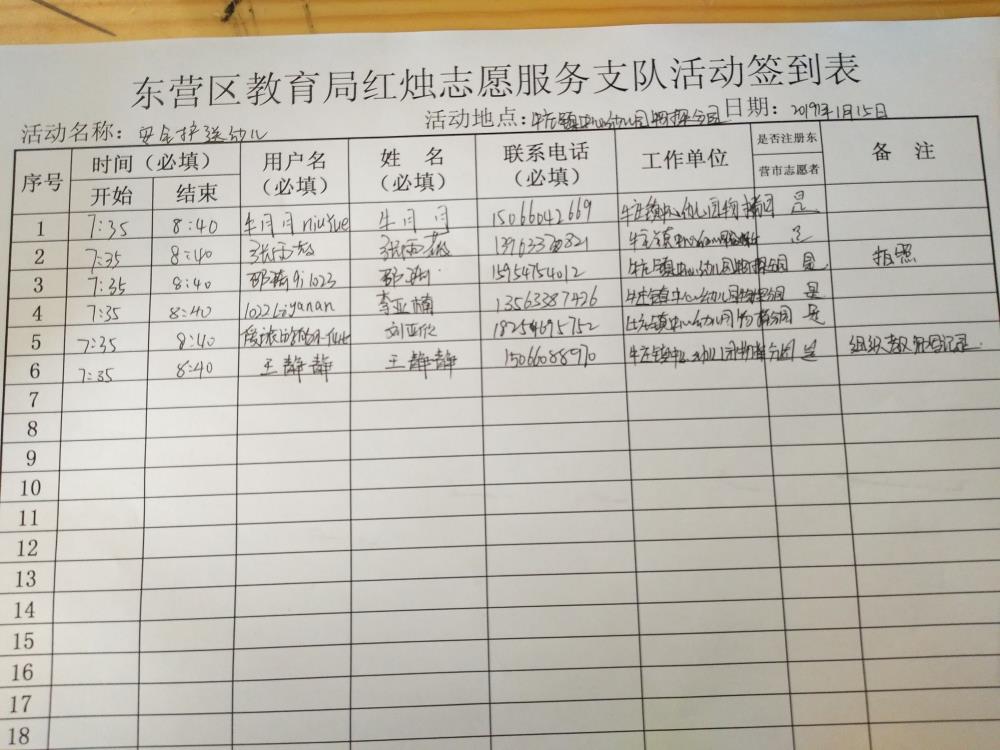 东营区教育局红烛志愿服务支队活动签到表
活动名称：安全护送幼儿 活动地点：牛庄镇中心幼儿园物探分园 日期：2019年1月15日
序号 时间（必填） 用户名（必填） 姓 名（必填） 联系电话（必填） 工作单位 是否注册东营市志愿者 备 注
开始 结束
1 7:35 8:40 牛月月niuyue 牛月月 15066042669 牛庄镇中心幼儿园物探分园 是
2 7:35 8:40 牛庄镇中心幼儿园 是 拍照
3 7:35 8:40 15954754012 牛庄镇中心幼儿园物探分园 是
4 7:35 8:40 1022Liyanan 李亚楠 13563387426 牛庄镇中心幼儿园物探分园 是
5 7:35 8:40 刘亚欣 18254695752 牛庄镇中心幼儿园物探分园 是
6 7:35 8:40 王静静 王静静 15066088970 牛庄镇中心幼儿园物探分园 是 组织
7
8
9
10
11
12
13
14
15
16
17
18